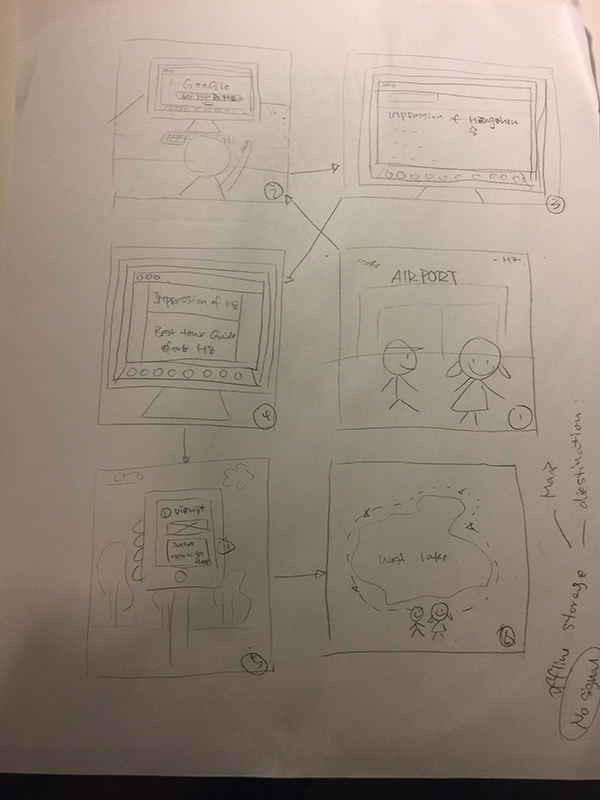 GOOGLe
2
Impression of Hangzhou
3
Impression of HZ
Best tour Guide
for HZ
4
- HZ -
AIRPORT
1
① viewpt
5
West lake
offline storage
Map
destination:
No signal